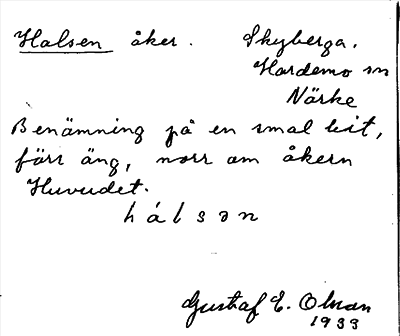 Halsen åker. Skyberga.
Hardemo sn
Närke
Benämning på en smal bit,
förr äng, norr om åkern
Huvudet.
hálsən
Gustaf E. Olman
1933